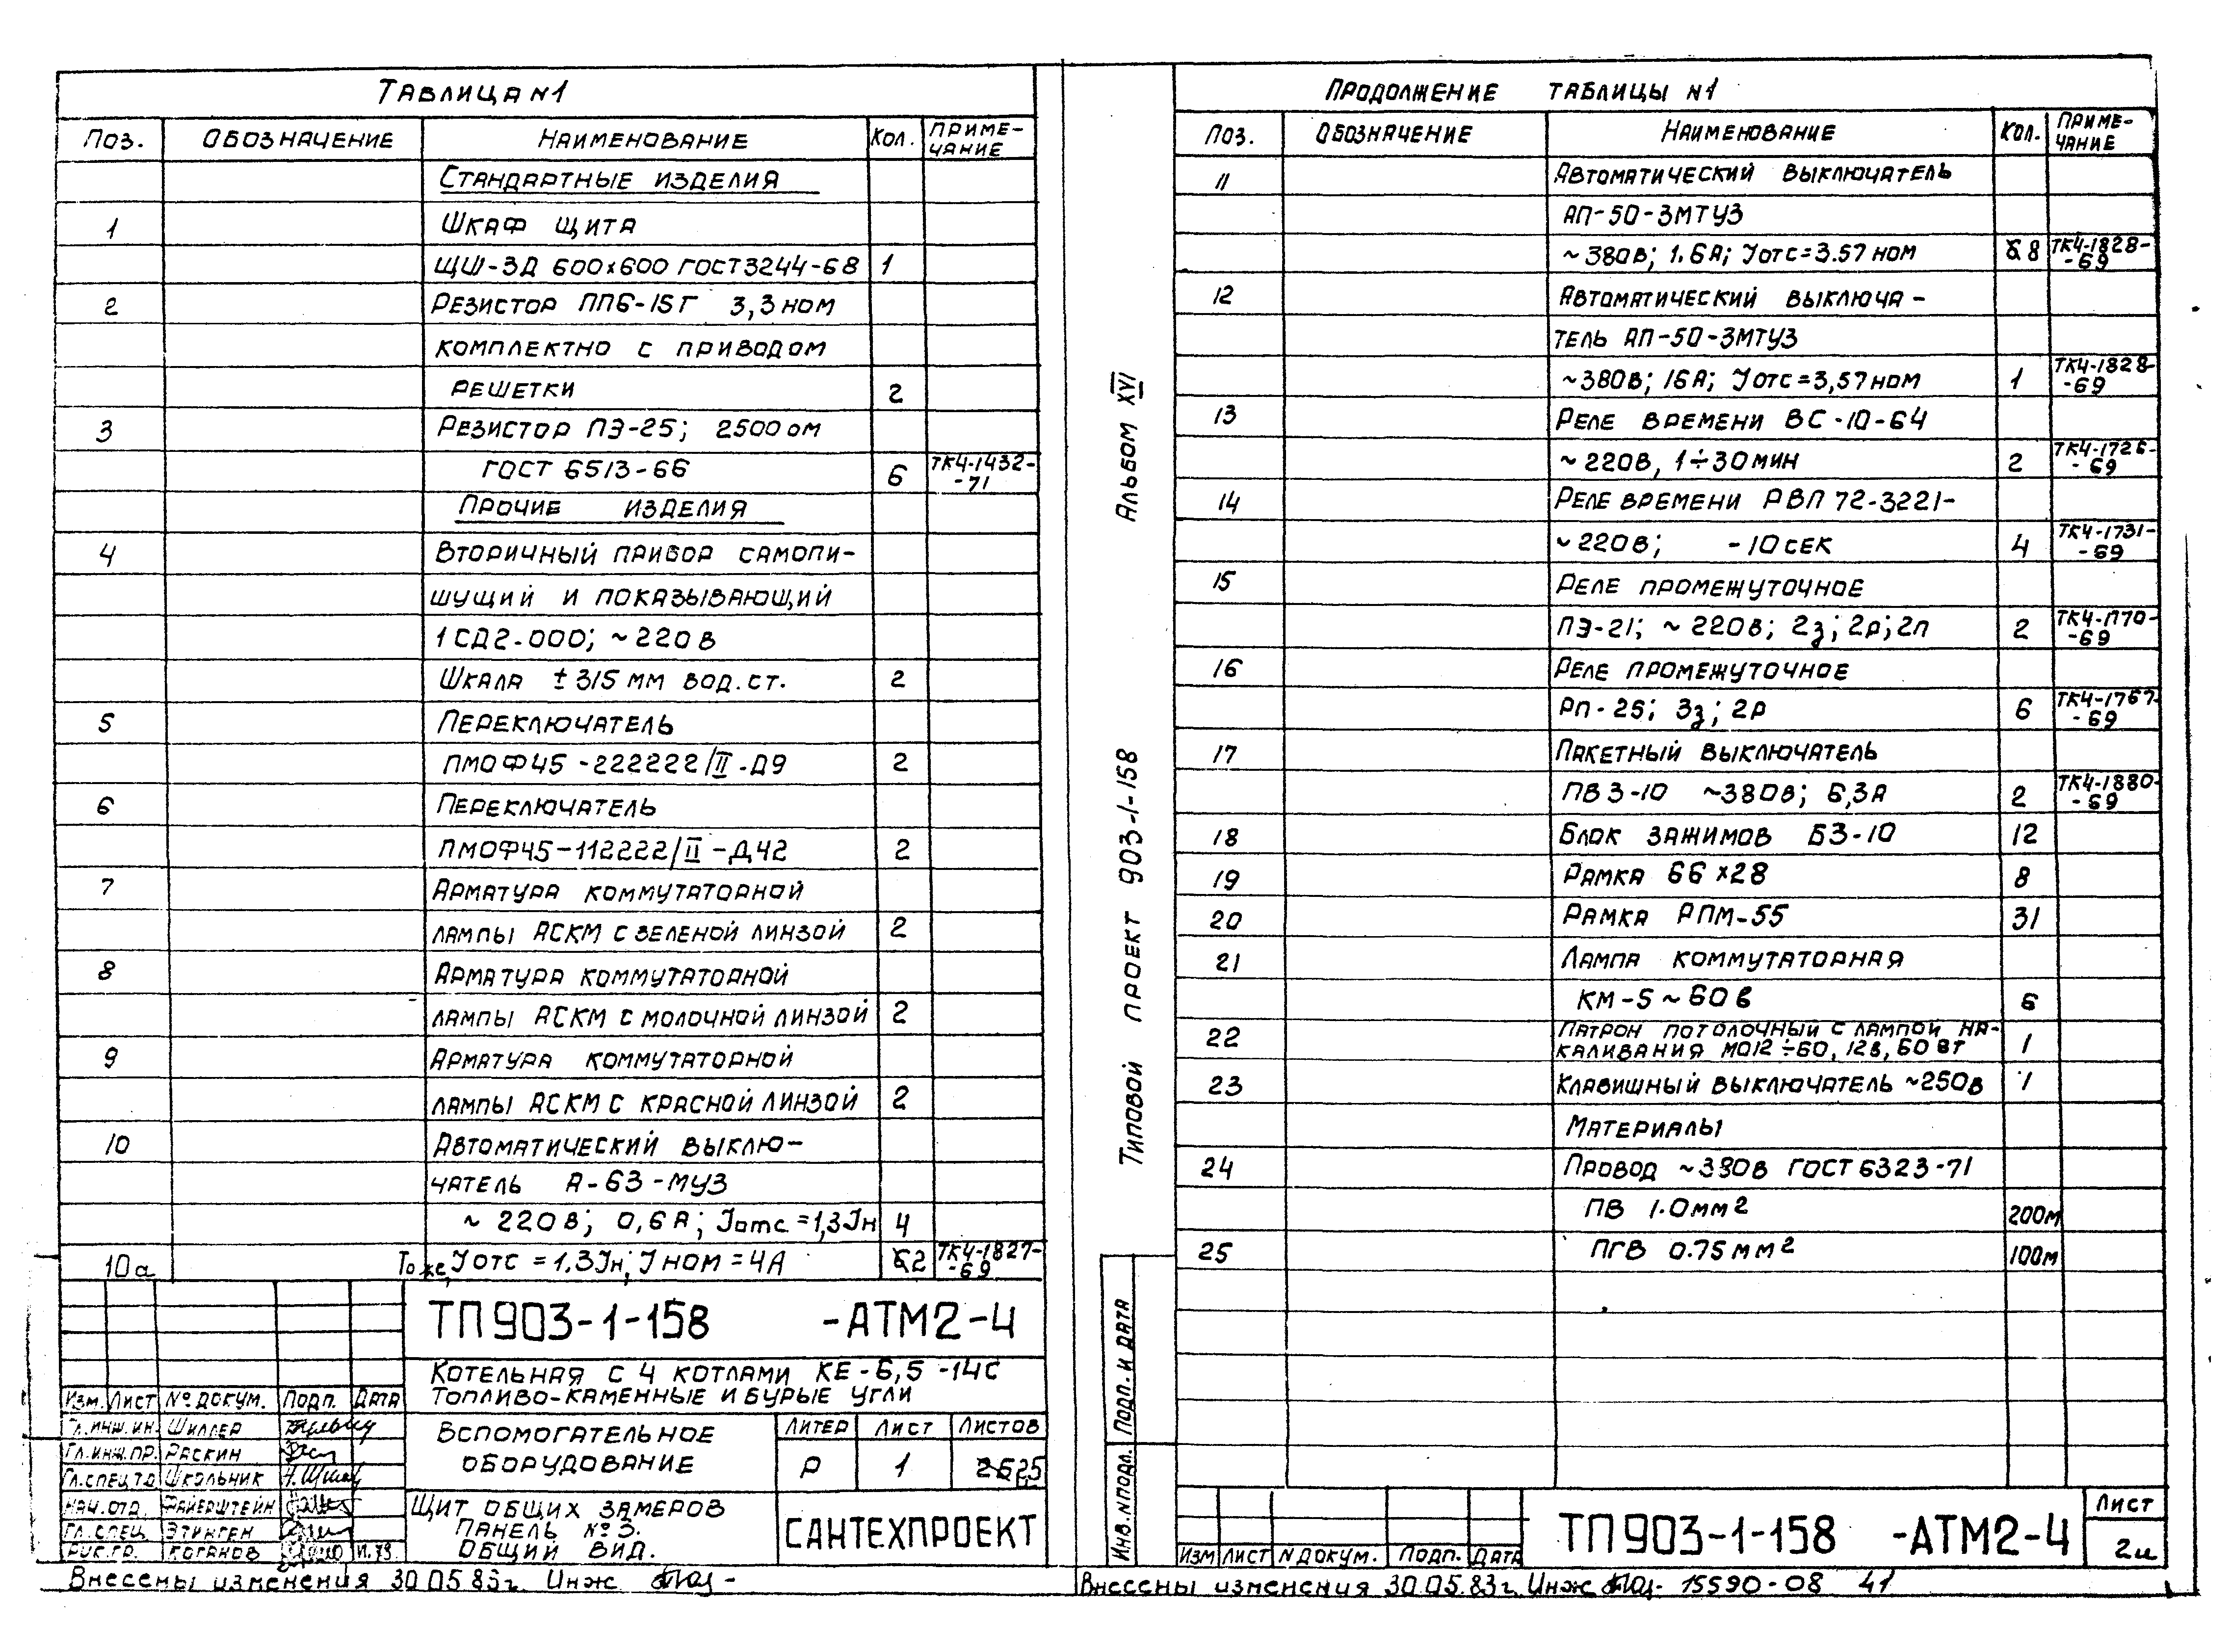 Таблица N1
Поз. Обозначение Наименование Кол. Приме-
чание
Стандартные изделия
1 Шкаф щита
ЩШ-ЗД 600х600 ГОСТ3244-68 1
2 Резистор ППБ-15Г 3,3 ном
комплектно с приводом
решетки 2
3 Резистор ПЭ-25; 2500 ом
ГОСТ 6513-66 6 ТК4-1432-
-71
Прочие изделия
4 Вторичный прибор самопи-
шущий и показывающий
1СД2-000; ~220в
Шкала ±315 мм вод.ст. 2
5 Переключатель
ПМОФ45-222222/II-Д9 2
6 Переключатель
ПМОФ45-112222/II-Д42 2
7 Арматура коммутаторной
лампы АСКМ с зеленой линзой 2
8 Арматура коммутаторной
лампы АСКМ с молочной линзой 2
9 Арматура коммутаторной
лампы АСКМ с красной линзой 2
10 Автоматический выклю-
чатель А-63-МУЗ
~ 220в; 0,6А; Jотс=1,3Jн 4
10а То же, Jотс = 1.3Jн; Jном = 4А 2 ТК4-1827-
-69
ТП903-1-158 -АТМ2-4
Котельная с 4 котлами КЕ-6,5-14С
Топливо-каменные и бурые угли
Изм. Лист № докум. Подп. Дата
Гл.инж.ин. Шиллер
Гл.инж.пр. Раскин
Гл.спец.т.о. Школьник
Нач.отд. Файерштейн
Гл.спец. Этинген
Рук.гр. Коганов
Вспомогательное
оборудование
Литер Лист Листов
Р 1 25
Щит общих замеров
Панель №3.
Общий вид.
САНТЕХПРОЕКТ
Внесены изменения 30.05.83г. Инж
Альбом XVI
Типовой проект 903-1-158
Инв.№подл. Подп. и дата
Продолжение таблицы N1
Поз. Обозначение Наименование Кол. Приме-
чание
11 Автоматический выключатель
АП-50-3МТУЗ
~380в; 1.6А; Jотс=3.57ном 8 ТК4-1828-
-69
12 Автоматический выключа-
тель АП-50-3МТУЗ
~380в; 16А; Jотс=3,57ном 1 ТК4-1828-
-69
13 Реле времени ВС-10-64
~220в, 1÷30мин 2 ТК4-1726-
-69
14 Реле времени РВП 72-3221-
~220в; -10сек 4 ТК4-1731-
-69
15 Реле промежуточное
ПЭ-21; ~220в; 2з; 2р; 2п 2 ТК4-П70-
-69
16 Реле промежуточное
РП-25; 3з; 2р 6 ТК4-1767-
-69
17 Пакетный выключатель
ПВ3-10 ~380в; 6,3А 2 ТК4-1880-
-69
18 Блок зажимов БЗ-10 12
19 Рамка 66х28 8
20 Рамка РПМ-55 31
21 Лампа коммутаторная
КМ-5 ~60в 6
22 Патрон потолочный с лампой на-
каливания МО12÷60, 12в, 60вт 1
23 Клавишный выключатель ~250в 1
Материалы
24 Провод ~380в ГОСТ 6323-71
ПВ 1.0мм2 200м
25 ПГВ 0.75мм2 100м
Изм Лист N докум. Подп. Дата
ТП903-1-158 -АТМ2-4
Лист
2и
Внесены изменения 30.05.83г. Инж 15590-08 41